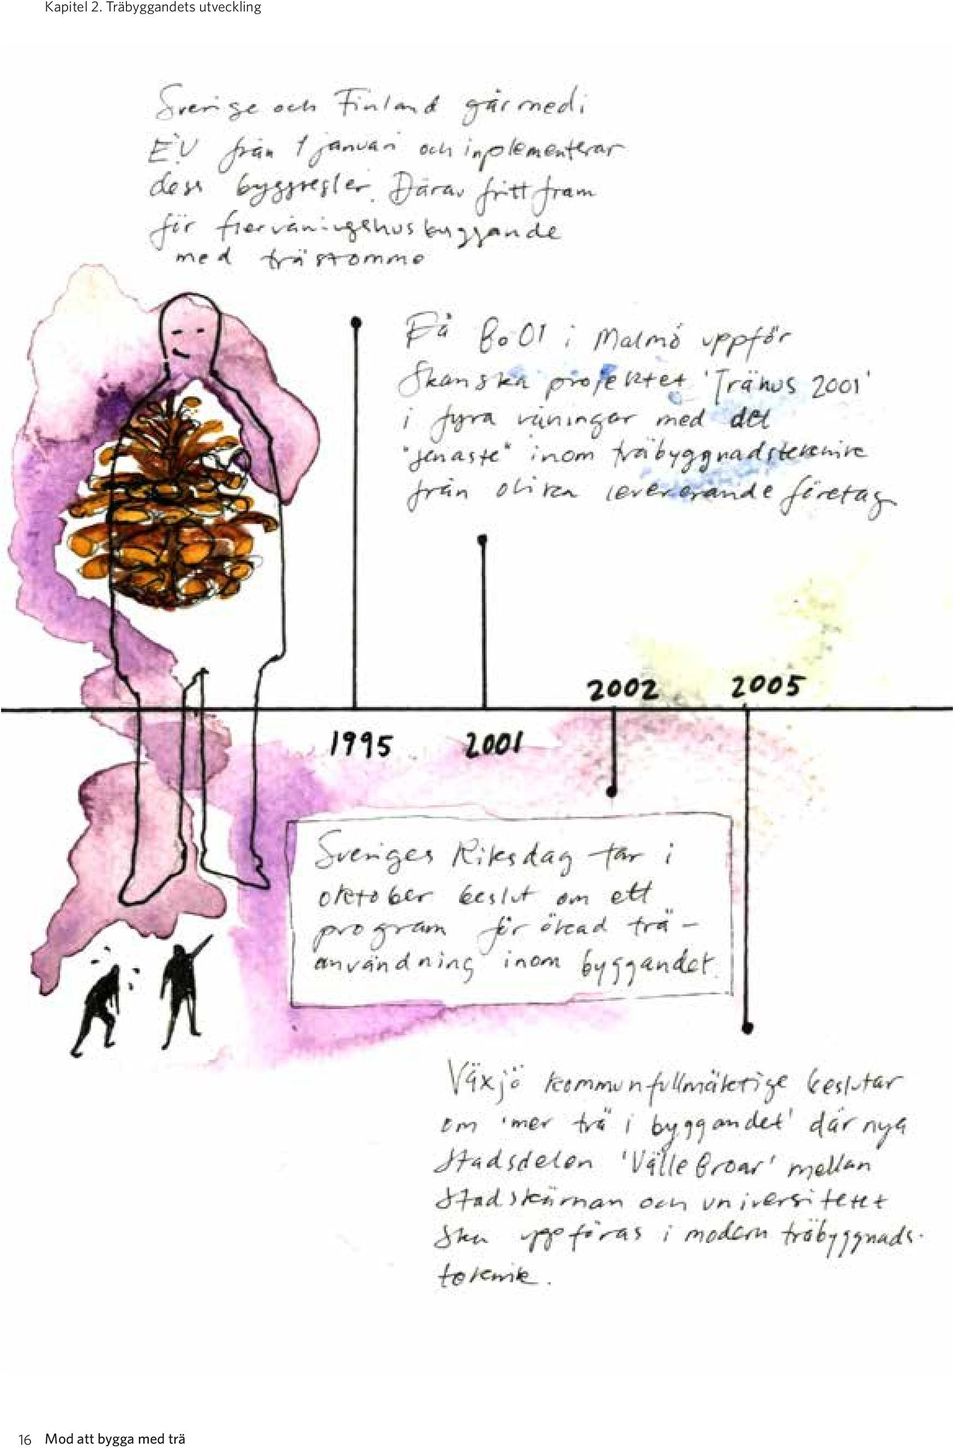 Kapitel 2. Träbyggandets utveckling
Sverige och Finland går med i
EU från 1 januari och inplementerar
dess byggregler. Därav fritt fram
för flervåningshusbyggande
med trästomme
På Bo01 i Malmö uppför
Skanska projektet 'Trähus 2001'
i fyra våningar med det
"senaste" inom träbyggnadsteknik
från olika levererande företag
2002 2005
1995 2001
Sveriges Riksdag tar i
oktober beslut om ett
program för ökad trä-
användning inom byggandet.
Växjö kommunfullmäktige beslutar
om 'mer trä i byggandet' där nya
stadsdelen 'Välle Broar' mellan
stadskärnan och universitetet
ska uppföras i modern träbyggnads-
teknik.
16 Mod att bygga med trä